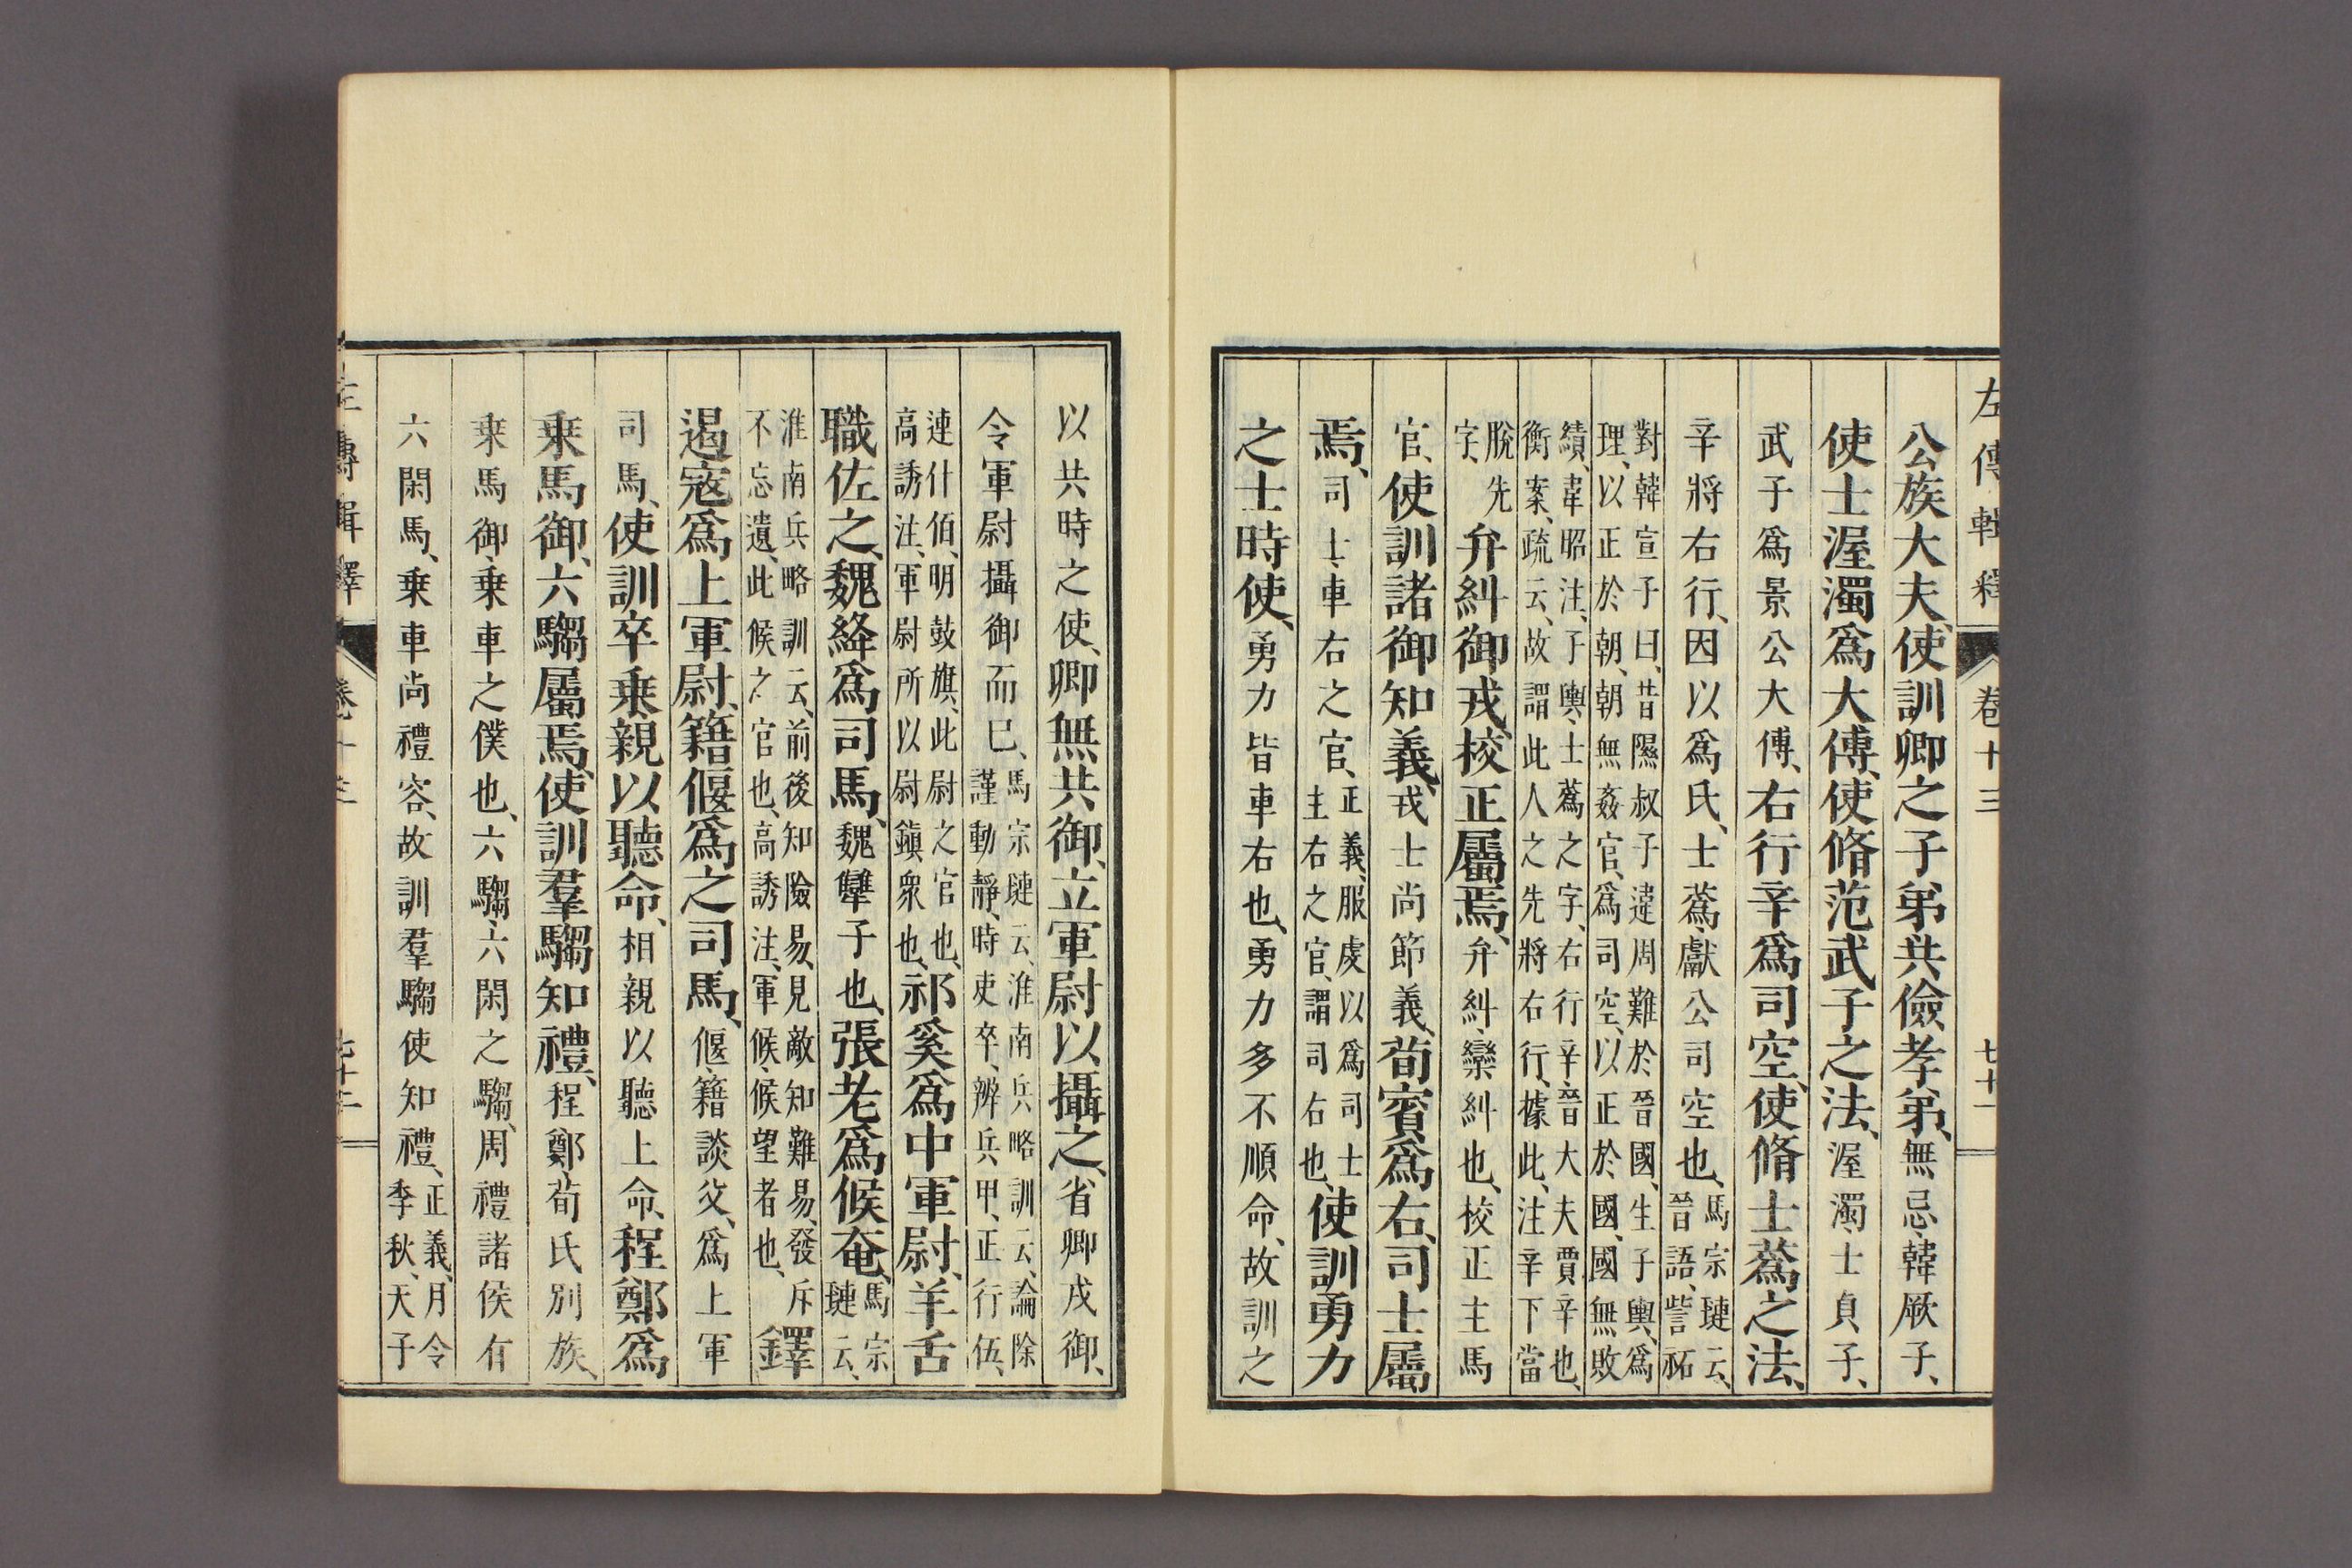 左傳輯釋 卷十三 七十一
公族大夫、使訓卿之子弟共儉孝弟、無忌、韓厥子、
使士渥濁爲大傅、使脩范武子之法、渥濁、士貞子、
武子爲景公大傅、右行辛爲司空、使脩士蒍之法、
辛將右行、因以爲氏、士蒍、獻公司空也、馬宗璉云、
晉語、訾祏
對韓宣子曰、昔隰叔子違周難於晉國、生子輿、爲
理、以正於朝、朝無姦官、爲司空、以正於國、國無敗
績、韋昭注、子輿、士蒍之字、右行辛、晉大夫賈辛也、
衡案、疏云、故謂此人之先將右行、據此、注辛下當
脫先
字、弁糾御戎、校正屬焉、弁糾、欒糾也、校正主馬
官、使訓諸御知義、戎士尚節義、荀賓爲右、司士屬
焉、司士、車右之官、正義、服虔以爲司士
主右之官、謂司右也、使訓勇力
之士時使、勇力皆車右也、勇力多不順命、故訓之
以共時之使、卿無共御、立軍尉以攝之、省卿戎御、
令軍尉攝御而已、馬宗璉云、淮南兵略訓云、論除
謹動靜、時吏卒、辨兵甲、正行伍、
連什伯、明鼓旗、此尉之官也、
高誘注、軍尉所以尉鎭衆也、祁奚爲中軍尉、羊舌
職佐之、魏絳爲司馬、魏犨子也、張老爲候奄、馬宗
璉云、
淮南兵略訓云、前後知險易、見敵知難易、發斥
不忘遺、此候之官也、高誘注、軍候、候望者也、鐸
遏寇爲上軍尉、籍偃爲之司馬、偃、籍談父、爲上軍
司馬、使訓卒乘、親以聽命、相親以聽上命、程鄭爲
乘馬御、六騶屬焉、使訓羣騶知禮、程鄭、荀氏別族、
乘馬御、乘車之僕也、六騶、六閑之騶、周禮諸侯有
六閑馬、乘車尚禮容、故訓羣騶使知禮、正義、月令
季秋、天子
左傳輯釋 卷十三 七十二